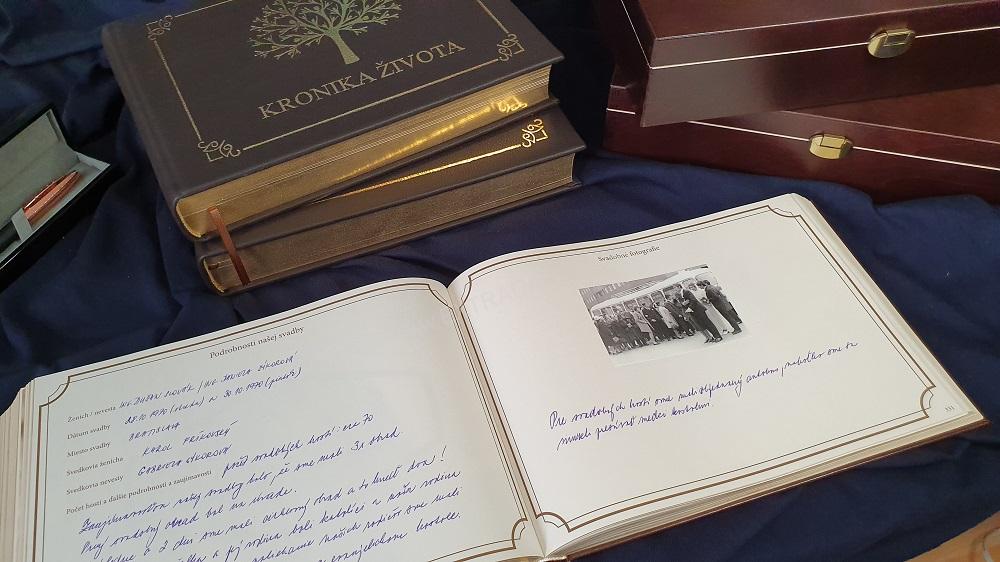 KRONIKA ŽIVOTA
Podrobnosti našej svadby
Ženích / nevesta ING. DUŠAN SLOVÁK / ING. DANIELA SÝKOROVÁ
Dátum svadby 28.10.1970 (streda) a 30.10.1970 (piatok)
Miesto svadby BRATISLAVA
Svedkovia ženícha KAROL
Svedkovia nevesty GABRIELA SÝKOROVÁ
Počet hostí a ďalšie podrobnosti a zaujímavosti počet svadobných hostí: cca 70
Zaujímavosťou našej svadby bolo, že sme mali 3x obrad.
Prvý svadobný obrad bol na úrade.
o 2 dni sme mali cirkevný obrad a to hneď dva!
a jej rodina boli katolíci a naša rodina
našich rodičov sme mali
evanjelickom kostole.
Svadobné fotografie
Pre svadobných hostí sme mali objednaný autobus, nakoľko sme sa
museli presúvať medzi kostolmi.
333